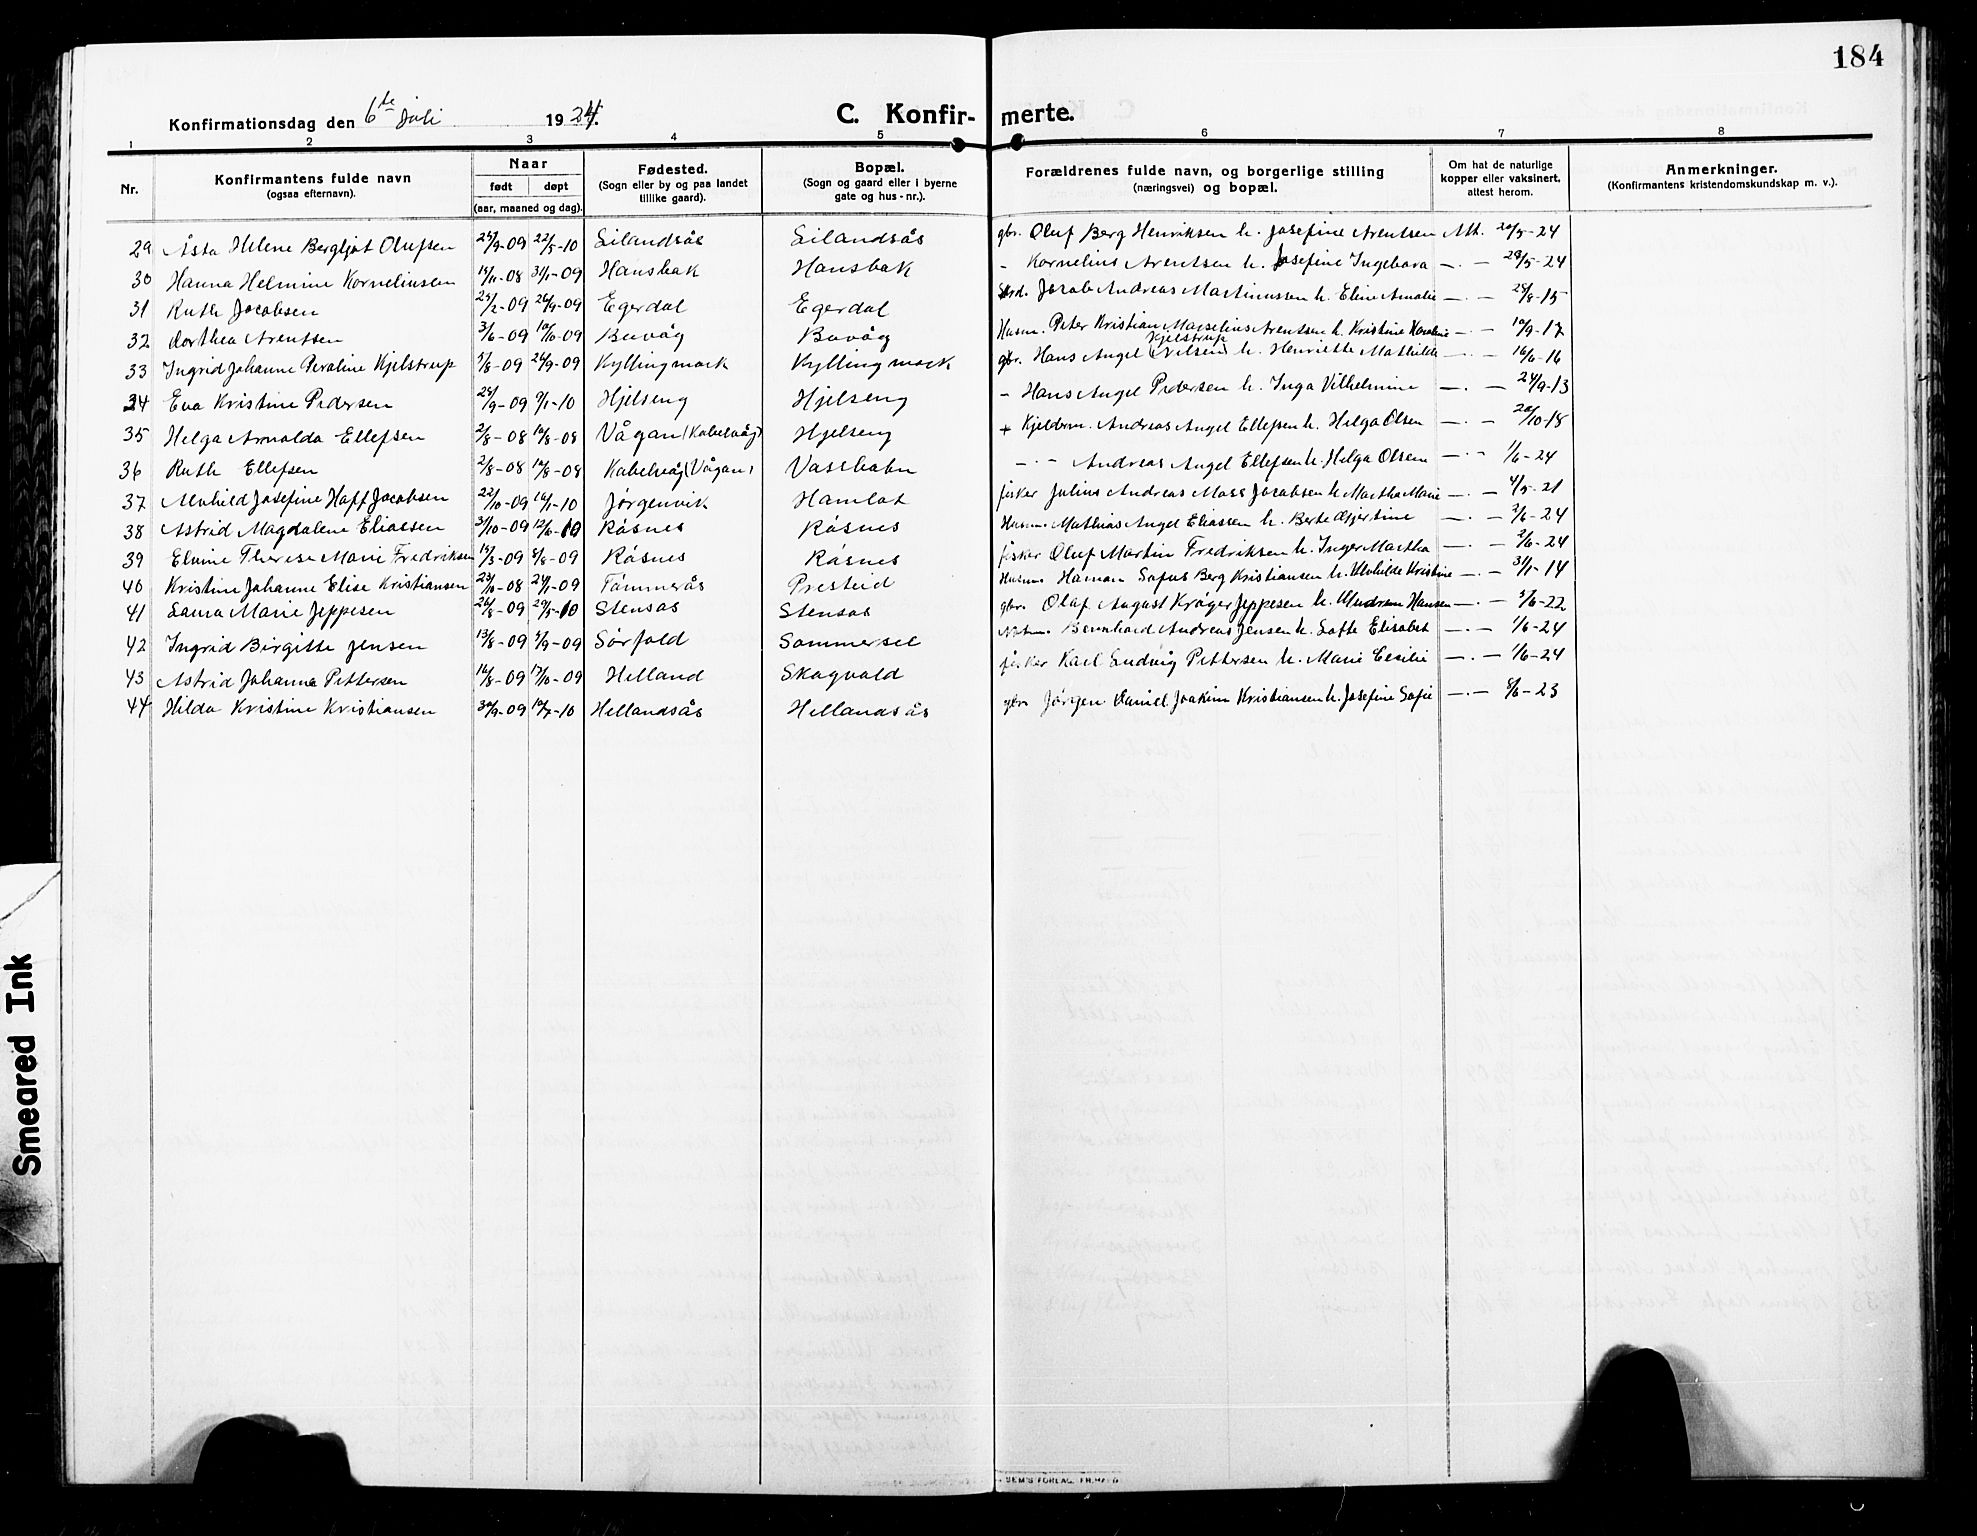 184
Konfirmationsdag den 6te Juli 1924. C. Konfir- merte.
1 2 3 4 5 6 7 8
Nr. Konfirmantens fulde navn (ogsaa efternavn). Naar født døpt (aar, maaned og dag). Fødested. (Sogn eller by og paa landet tillike gaard). Bopæl. (Sogn og gaard eller i byerne gate og hus-nr.). Forældrenes fulde navn, og borgerlige stilling (næringsvei) og bopæl. Om hat de naturlige kopper eller vaksinert, attest herom. Anmerkninger. (Konfirmantens kristendomskundskap m. v.).
29 Åsta Helene Bergljot Olufsen 22/5-10 Eilandsås Eilandsås gbr. Oluf Berg Henriksen h. Josefine Arentsen Att. 20/5-24
30 Hanna Helmine Kornelinsen 31/1-09 Hansbak Hansbak - Kornelius Arentsen h. Josefine Ingebora -.- 28/5-24
31 Ruth Jacobsen 25/2-09 26/9-09 Egerdal Egerdal Jacob Andreas Martinussen h. Eline Amalie -.- 28/8-15
32 Dorthea Arentsen 3/6-09 10/10-09 Buvåg Buvåg Husm. Peter Kristian Marselius Arentsen h. Kristine Karoline -.- 10/9-17
33 Ingrid Johanne Peraline Kjelstrup 1/8-09 26/9-09 Kyllingmark Kyllingmark gbr. Hans Angel Nilsen Kjelstrup h. Henriette Mathilde -.- 16/6-16
34 Eva Kristine Pedersen 9/1-10 Hjelseng Hjelseng - Hans Angel Pedersen h. Inga Vilhelmine -.- 24/9-13
35 Helga Arnolda Ellefsen 2/8-08 Vågan (Kabelvåg) Hjelseng + Andreas Angel Ellefsen h. Helga Olsen -.- 20/10-18
36 Ruth Ellefsen 2/8-08 Kabelvåg (Vågan) Vassbotn -.- Andreas Angel Ellefsen h. Helga Olsen -.- 1/6-24
37 Alvhild Josefine Haff Jacobsen 22/10-09 16/1-10 Jørgenvik Hamlot fisker Julius Andreas Moss Jacobsen h. Martha Marie -.- 4/5-21
38 Astrid Magdalene Eliassen 31/10-09 12/6-10 Råsnes Råsnes Husm. Mathias Angel Eliassen h. Berte Gjertine -.- 2/6-24
39 Elvine Therese Marie Fredriksen 15/3-09 8/8-09 Råsnes Råsnes fisker Oluf Martin Fredriksen h. Inger Martha -.- 2/6-24
40 Kristine Johanne Elise Kristiansen 23/10-08 24/1-09 Tømmerås Presteid Husm. Haman Sofus Berg Kristiansen h. Alvhilde Kristine -.- 31/1-14
41 Laura Marie Jeppesen 26/8-09 29/5-10 Stensås Stensås gbr. Olaf August Krøger Jeppesen h. Hansen -.- 1/6-22
42 Ingrid Birgitte Jensen 13/8-09 5/9-09 Sørfold Sommersel Bernhard Andreas Jensen h. Lotte Elisabet -.- 1/6-24
43 Astrid Johanna Pettersen 16/8-09 17/10-09 Helland Skogvold fisker Karl Ludvig Pettersen h. Marie Cecilie -.- 1/6-24
44 Hilda Kristine Kristiansen 30/9-09 10/7-10 Hellandsås Hellandsås gbr. Jørgen Daniel Joakim Kristiansen h. Josefine Sofie -.- 6/6-23
Smeared Ink
SEM'S FORLAG, FR.HALD